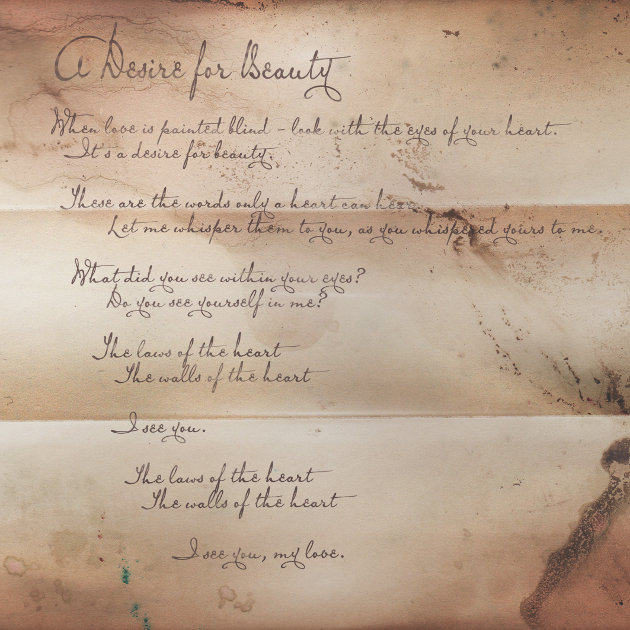 A Desire for Beauty
When love is painted blind - look with the eyes of your heart.
It's a desire for beauty.
These are the words only a heart can hear.
Let me whisper them to you, as you whispered yours to me.
What did you see within your eyes?
Do you see yourself in me?
The laws of the heart
The walls of the heart
I see you.
The laws of the heart
The walls of the heart
I see you, my love.